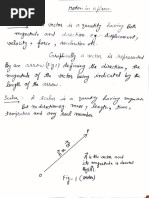 Motion in a plane
vector is a quantity having both
magnitude and direction eg- displacement,
velocity, force, acceleration etc.
Graphically a vector is represented
by an arrow (Fig-1) defining the direction, the
magnitude of the vector being indicated by
the length of the arrow.
Scalar - A scalar is a quantity having magnitude
but no direction eg mass, length, time,
tempture and any real number.
P
O
Fig-1 (vector)
is the vector and
its magnitude is denoted
by